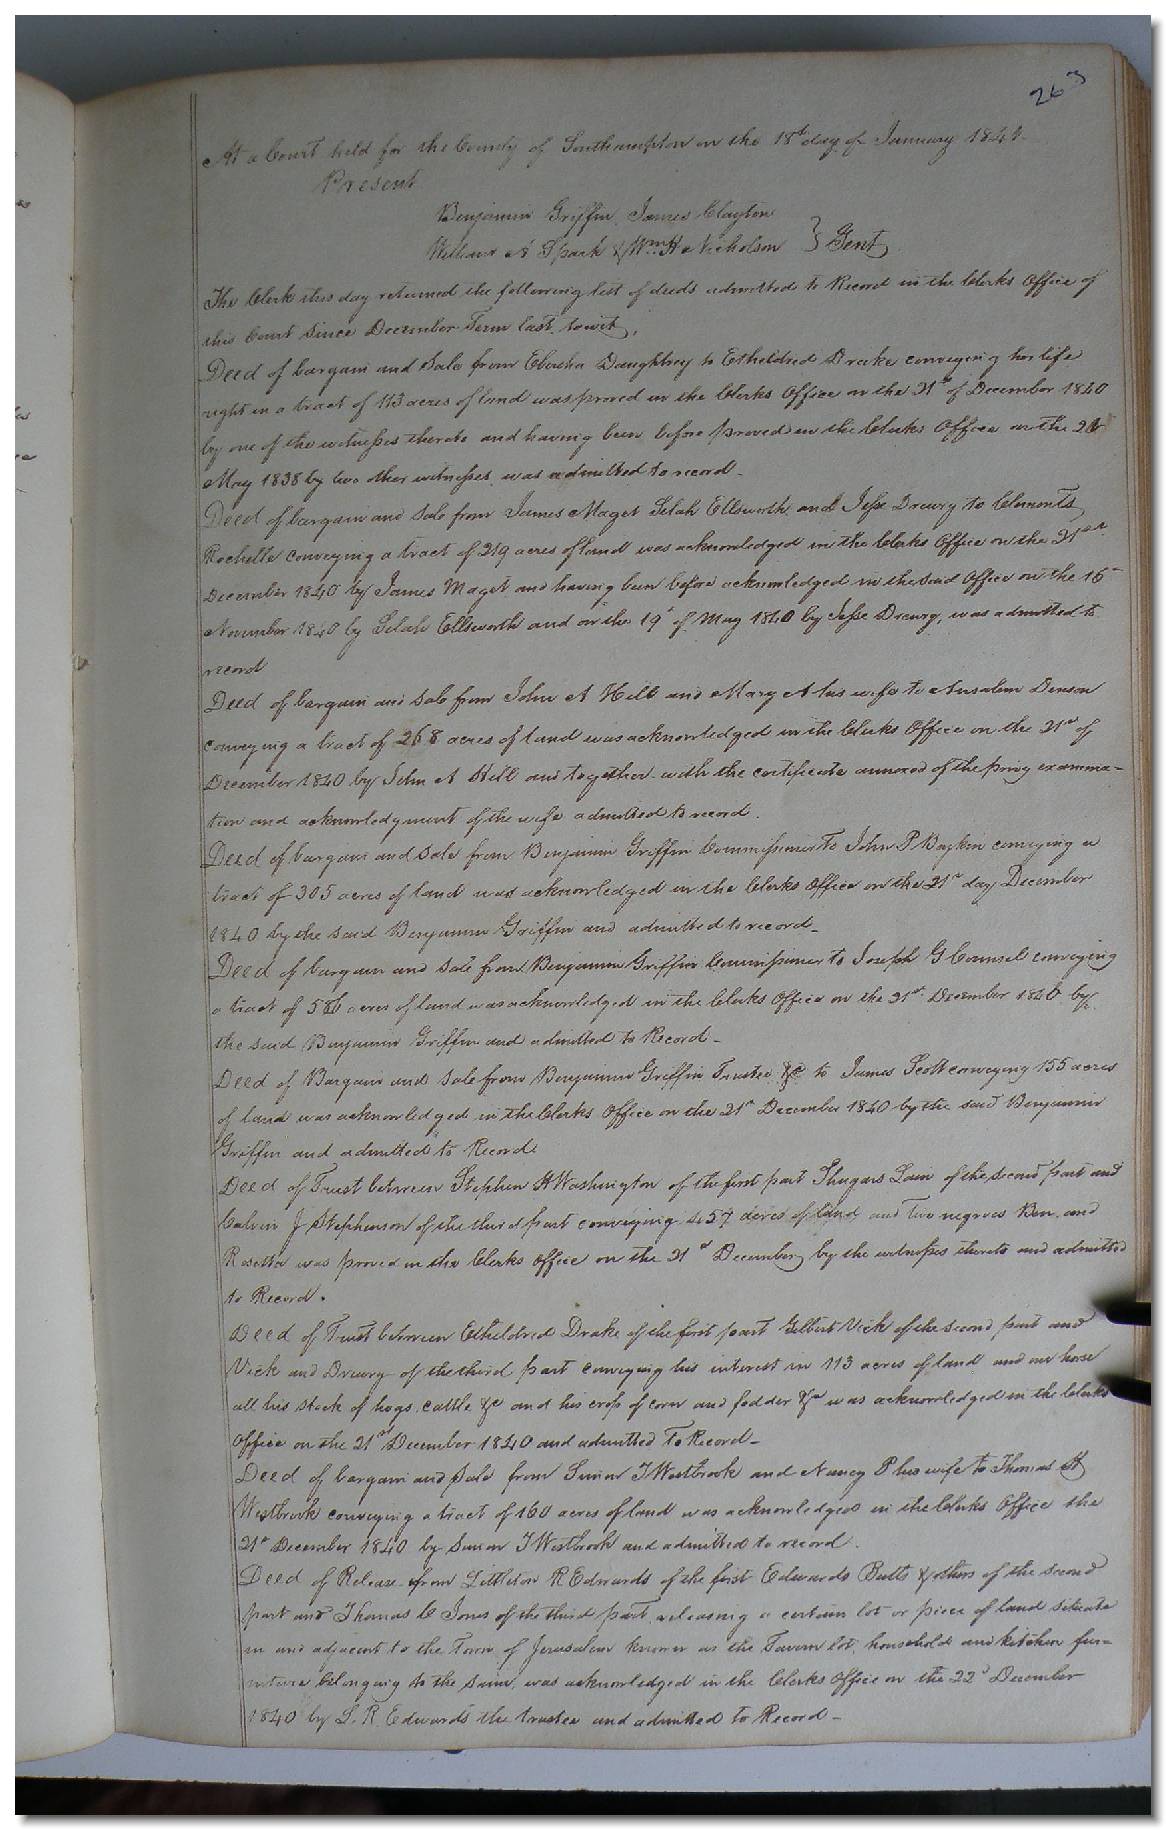 263
At a Court held for the County of Southampton on the 18th day of January 1841.
Present
Benjamin Griffin, James Clayton
William A Spark & Wm H Nicholson } Gent,
The Clerk this day returned the following list of deeds admitted to Record in the Clerks Office of
this Court since December Term last, towit,
Deed of bargain and Sale from Daughtrey to Etheldred Drake conveying her life
right in a tract of 113 acres of land was proved in the Clerks Office on the 21st of December 1840
by one of the witnesses thereto and having been before proved in the Clerks Office on the
May 1838 by two other witnesses, was admitted to record_
Deed of bargain and sale from James Maget Selah Ellsworth and Jesse Drewry to Clements
Rochelle conveying a tract of 219 acres of land was acknowledged in the Clerks Office on the 21st
December 1840 by James Maget and having been before acknowledged in the said Office on the 16
November 1840 by Selah Ellsworth and on the 19th of May 1840 by Jesse Drewry, was admitted to
record
Deed of bargain and sale from John A Hill and Mary A his wife to Denson
conveying a tract of 268 acres of land was acknowledged in the Clerks Office on the 21st of
December 1840 by John A Hill and together with the certificate annexed of the privy examina-
tion and acknowledgment of the wife admitted to record.
Deed of bargain and Sale from Benjamin Griffin Commissioner to John P Baykin conveying a
tract of 305 acres of land was acknowledged in the Clerks Office on the 21st day December
1840 by the said Benjamin Griffin and admitted to record_
Deed of bargain and sale from Benjamin Griffin Commissioner to Joseph G Counsel conveying
a tract of acres of land was acknowledged in the Clerks Office on the 21st December 1840 by
the said Benjamin Griffin and admitted to Record_
Deed of Bargain and sale from Benjamin Griffin Trustee &c to James Scott conveying 155 acres
of land was acknowledged in the Clerks Office on the 21st December 1840 by the said Benjamin
Griffin and admitted to Record.
Deed of Trust between Stephen H Washington of the first part Lain of the second part and
Calvin J Stephenson of the third part conveying 457 acres of land, and two negroes Ben, and
Rosetta was proved in the Clerks Office on the 21st December, by the witnesses thereto and admitted
to Record.
Deed of Trust between Etheldred Drake of the first part Gilbert Vick of the second part and
Vick and Drewry of the third part conveying his interest in 113 acres of land and one horse
all his stock of hogs, cattle &c and his crop of corn and fodder &c was acknowledged in the Clerks
Office on the 21st December 1840 and admitted to Record_
Deed of bargain and sale from Simon T Westbrook and Nancy P his wife to Thomas H
Westbrook conveying a tract of 160 acres of land was acknowledged in the Clerks Office the
21st December 1840 by Simon T Westbrook and admitted to record.
Deed of Release from Littleton R Edwards of the first Edwards Butts & others of the second
part and Thomas C Jones of the third part releasing a certain lot or piece of land situate
in and adjacent to the Town of Jerusalem known as the Tavern lot, household and kitchen fur=
niture belonging to the same, was acknowledged in the Clerks Office on the 22d December
1840 by L. R. Edwards the trustee and admitted to Record_